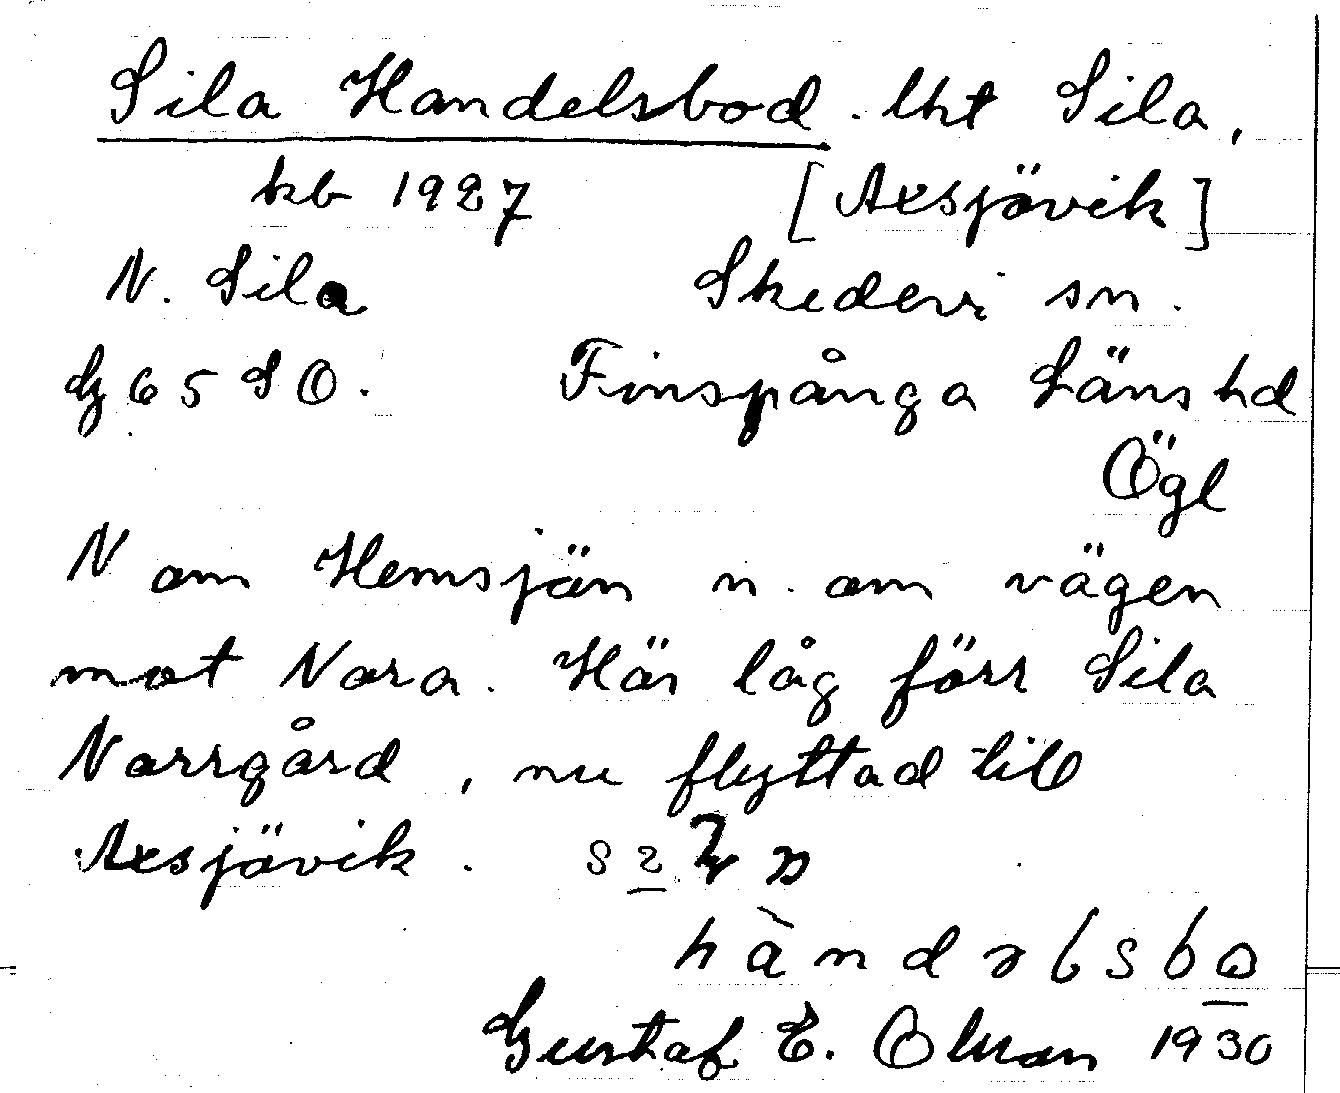 Sila Handelsbod. lht Sila,
kb 1927 [Axsjövik]
N. Sila Skedevi sn.
Gg 65 SO. Finspånga Läns hd
Ögl
N om Hemsjön n. om vägen
mot Nora. Här låg förr Sila
Norrgård, nu flyttad till
Axsjövik.
Gustaf E. Olsson 1930